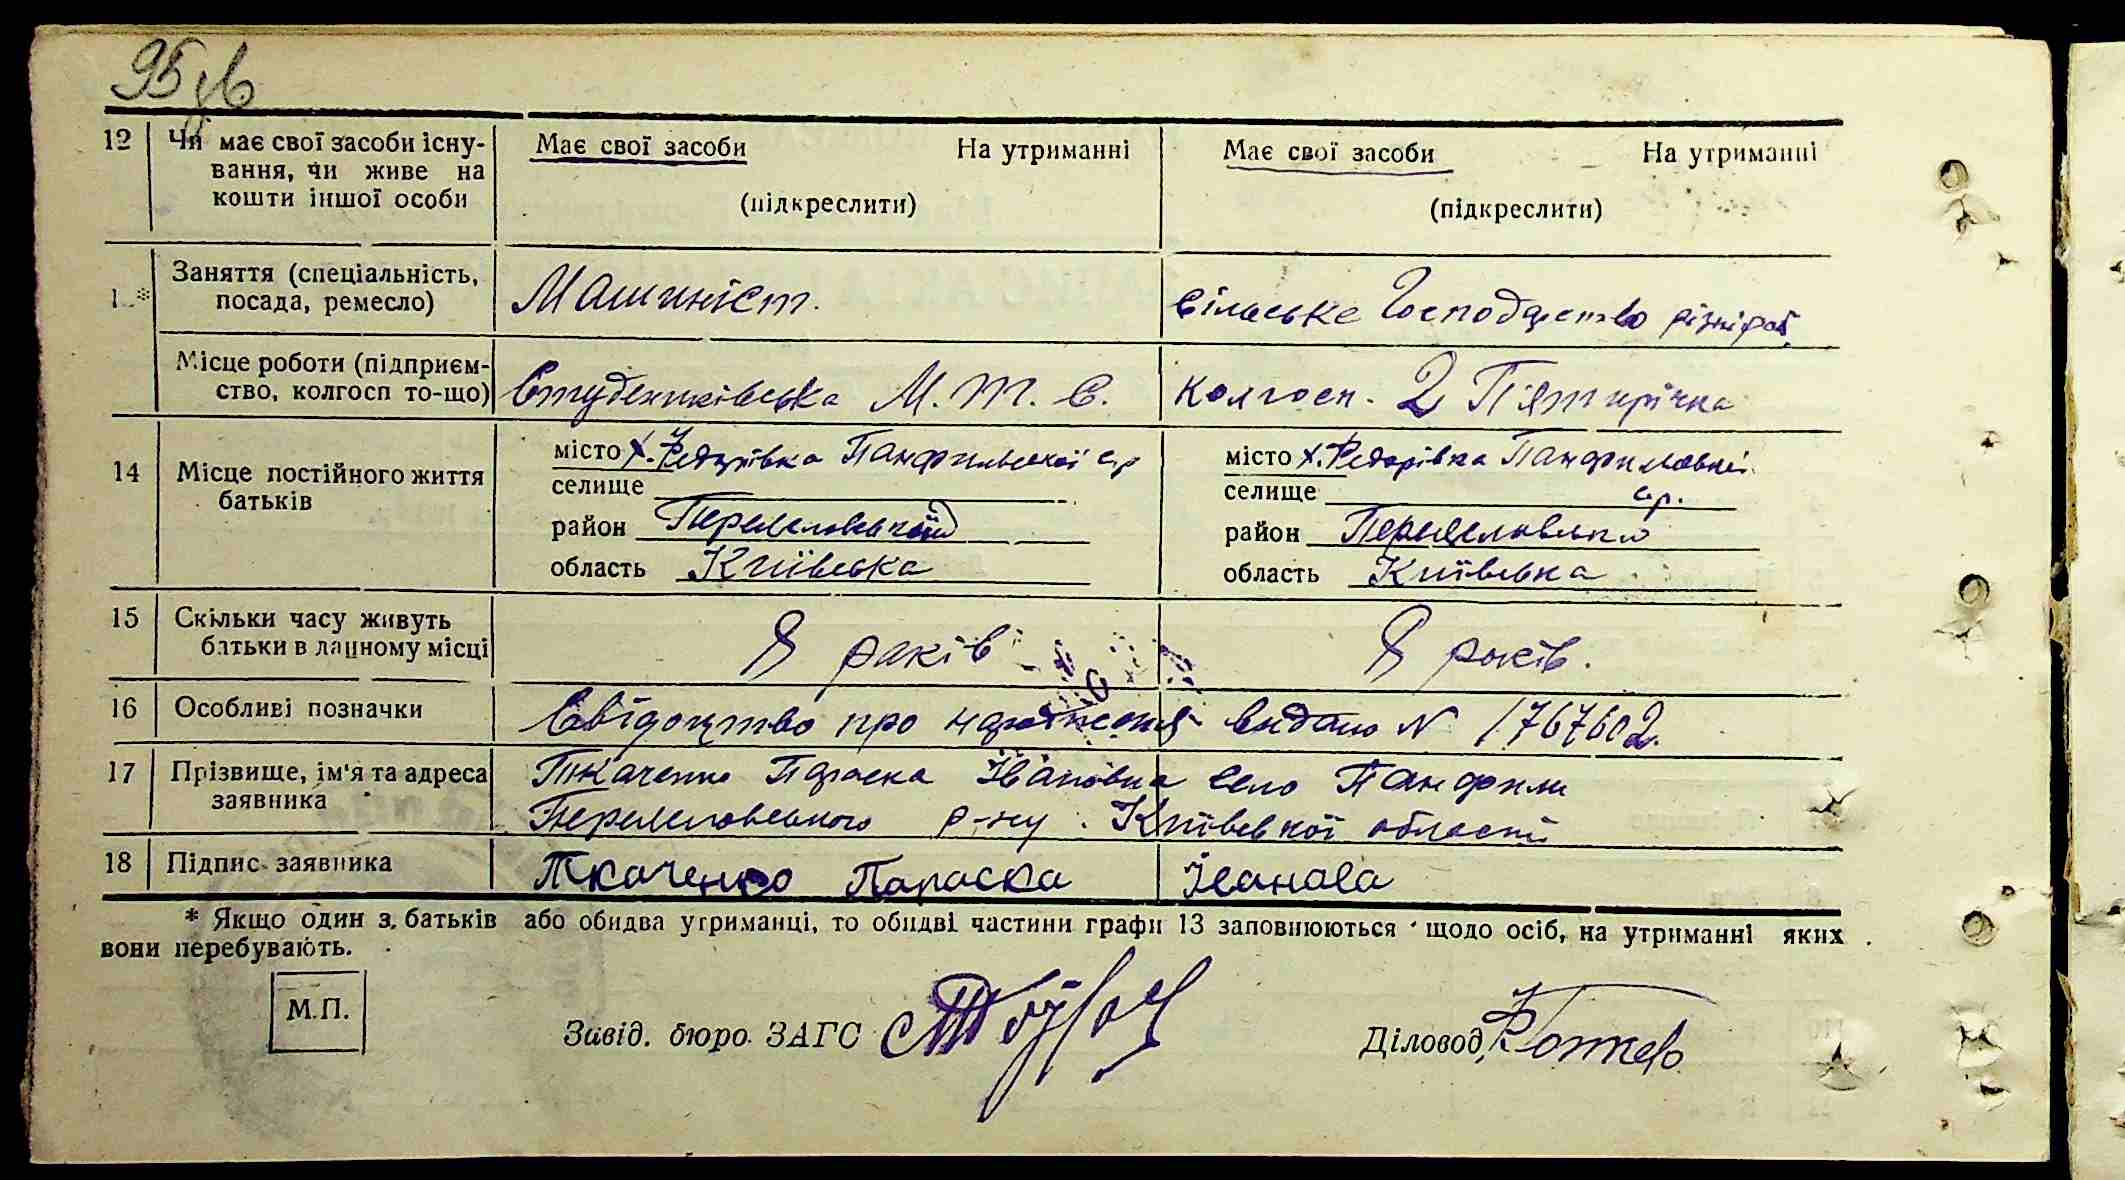 12 Чи має свої засоби існу-
вання, чи живе на
кошти іншої особи
Має свої засоби На утриманні
(підкреслити)
Має свої засоби На утриманні
(підкреслити)
Заняття (спеціальність,
посада, ремесло)
Машиніст.
Сільське Господарство різнороб.
Місце роботи (підприєм-
ство, колгосп то-що)
Студениківська М.Т.С.
Колгосп. 2 П'ятирічка
14 Місце постійного життя
батьків
місто х. Федорівка Панфильської с/р
селище
район Переяславський
область Київська
місто х. Федорівка Панфиловскої
селище с/р.
район Переяславськ
область Київська
15 Скільки часу живуть
батьки в данному місці
8 років
8 років.
16 Особливі позначки
Свідоцтво про народження видано N 1767602.
17 Прізвище, ім'я та адреса
заявника
Ткаченко Параска Івановна село Панфили
Переяславського р-ну. Київської області
18 Підпис заявника
Ткаченко Параска Іванова
* Якщо один з батьків або обидва утриманці, то обидві частини графи 13 заповнюються щодо осіб, на утриманні яких
вони перебувають.
М.П.
Завід. бюро ЗАГС
Діловод